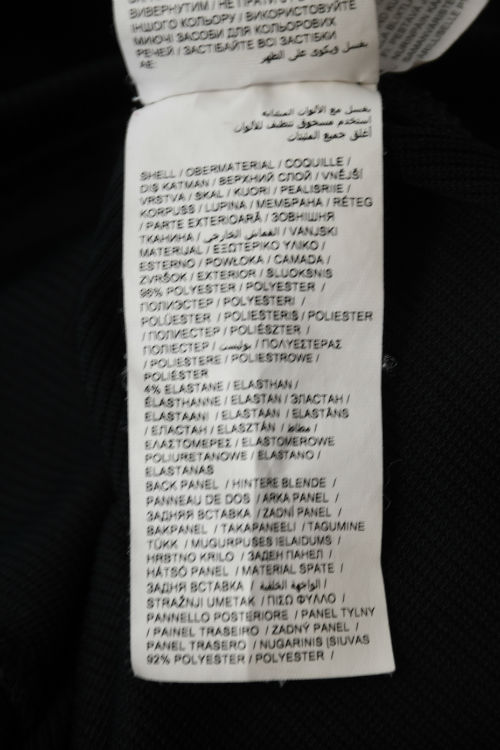 ВИВЕРНУТИМ / НЕ ПРАТИ
ІНШОГО КОЛЬОРУ / ВИКОРИСТОВУЙТЕ
МИЮЧІ ЗАСОБИ ДЛЯ КОЛЬОРОВИХ
РЕЧЕЙ / ЗАСТІБАЙТЕ ВСІ ЗАСТІБКИ
AE: يغسل ويكوى على الظهر
يغسل مع الألوان المشابه
استخدم مسحوق تنظيف للألوان
أغلق جميع المثبتات
SHELL / OBERMATERIAL / COQUILLE /
DIŞ KATMAN / ВЕРХНИЙ СЛОЙ / VNĚJŠÍ
VRSTVA / SKAL / KUORI / PEALISRIIE /
KORPUSS / LUPINA / МЕМБРАНА / RÉTEG
/ PARTE EXTERIOARĂ / ЗОВНІШНЯ
ТКАНИНА / القماش الخارجي / VANJSKI
MATERIJAL / ΕΞΩΤΕΡΙΚΟ ΥΛΙΚΟ /
ESTERNO / POWŁOKA / CAMADA /
ZVRŠOK / EXTERIOR / SLUOKSNIS
96% POLYESTER / POLYESTER /
ПОЛИЭСТЕР / POLYESTERI /
POLÜESTER / POLIESTERIS / POLIESTER
/ ПОЛИЕСТЕР / POLIÉSZTER /
ПОЛІЕСТЕР / بوليستر / ΠΟΛΥΕΣΤΕΡΑΣ
/ POLIESTERE / POLIESTROWE /
POLIÉSTER
4% ELASTANE / ELASTHAN /
ÉLASTHANNE / ELASTAN / ЭЛАСТАН /
ELASTAANI / ELASTAAN / ELASTĀNS
/ ЕЛАСТАН / ELASZTÁN / مطاط /
ΕΛΑΣΤΟΜΕΡΕΣ / ELASTOMEROWE
POLIURETANOWE / ELASTANO /
ELASTANAS
BACK PANEL / HINTERE BLENDE /
PANNEAU DE DOS / ARKA PANEL /
ЗАДНЯЯ ВСТАВКА / ZADNÍ PANEL /
BAKPANEL / TAKAPANEELI / TAGUMINE
TÜKK / MUGURPUSES IELAIDUMS /
HRBTNO KRILO / ЗАДЕН ПАНЕЛ /
HÁTSÓ PANEL / MATERIAL SPATE /
ЗАДНЯ ВСТАВКА / الواجهة الخلفية /
STRAŽNJI UMETAK / ΠΙΣΩ ΦΥΛΛΟ /
PANNELLO POSTERIORE / PANEL TYLNY
/ PAINEL TRASEIRO / ZADNÝ PANEL /
PANEL TRASERO / NUGARINIS ĮSIUVAS
92% POLYESTER / POLYESTER /